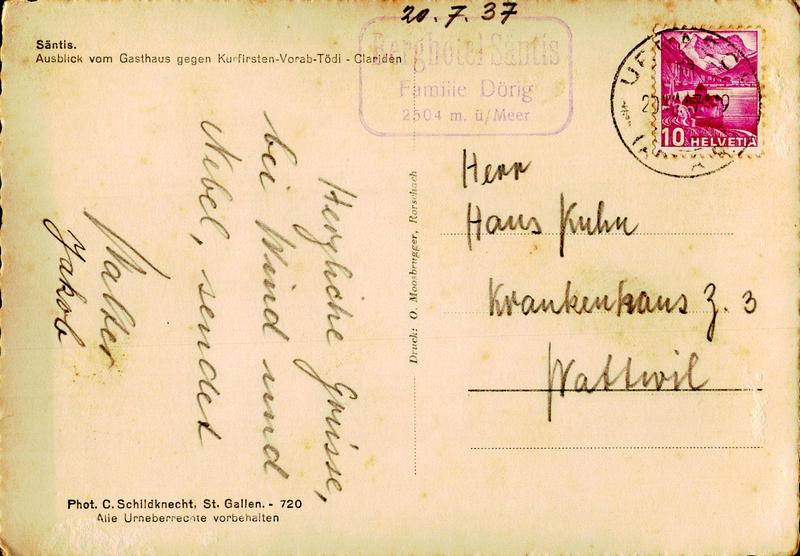 20. 7. 37
Säntis.
Ausblick vom Gasthaus gegen Kurfirsten-Vorab-Tödi - Clariden
Berghotel Säntis
Familie Dörig
2504 m. ü/Meer
10 HELVETIA
Herzliche Grüsse,
bei Wind und
Nebel, sendet
Walter
Jakob
Druck: O. Moosbrugger, Rorschach
Herr
Hans Kuhn
Krankenhaus Z. 3
Wattwil
Phot. C. Schildknecht, St. Gallen. - 720
Alle Urheberrechte vorbehalten